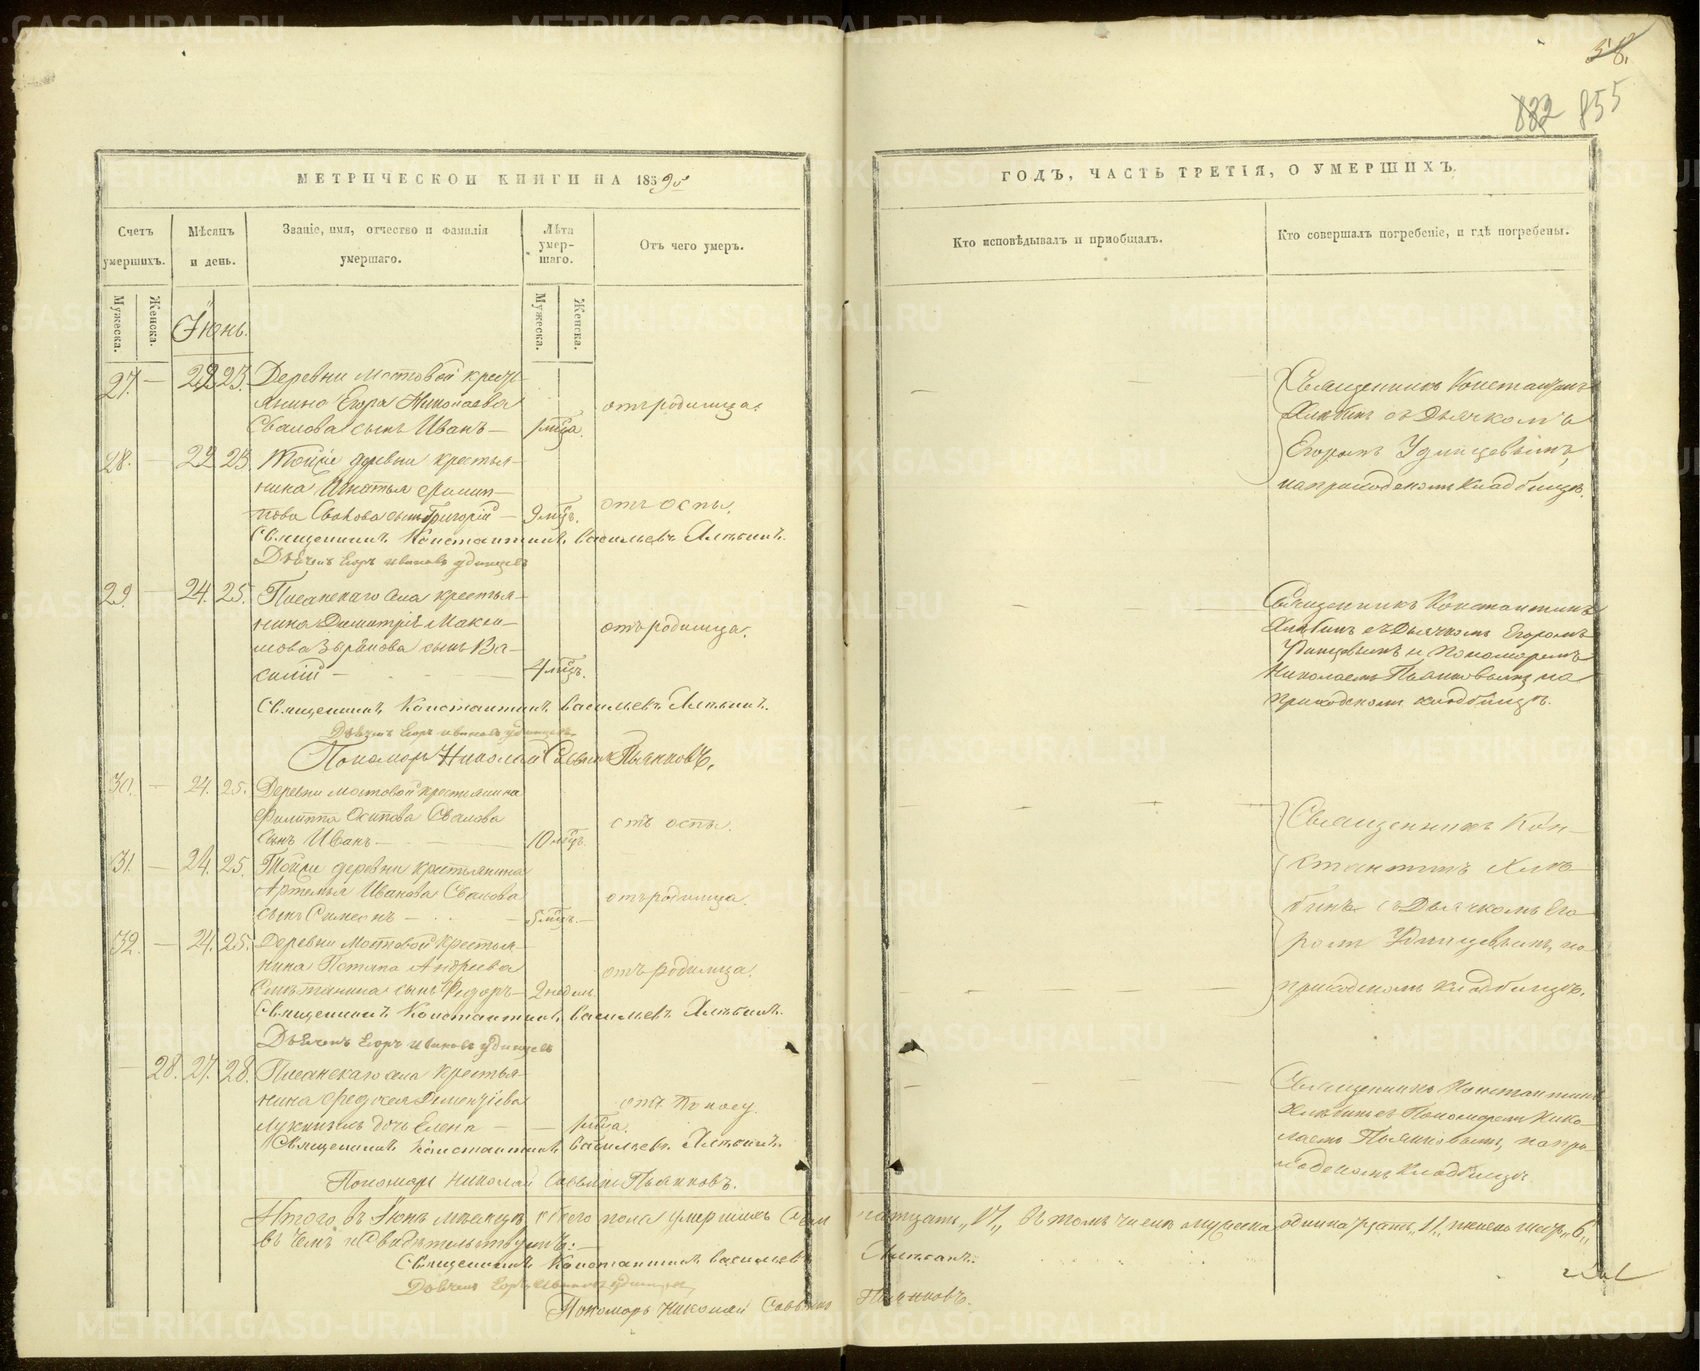 58.
832 855
МЕТРИЧЕСКОЙ КНИГИ НА 1859й
ГОДЪ, ЧАСТЬ ТРЕТІЯ, О УМЕРШИХЪ.
Счетъ умершихъ.
Мужеска.
Женска.
Мѣсяцъ и день.
Званіе, имя, отчество и фамилія умершаго.
Лѣта умер-шаго.
Мужеска.
Женска.
Отъ чего умеръ.
Кто исповѣдывалъ и приобщалъ.
Кто совершалъ погребеніе, и гдѣ погребены.
Іюнь.
27. — 22 23. Деревни Мостовой кресть-
янина Егора Николаева
Свалова сынъ Иванъ — 1 мца. отъ родимца.
Священникъ Константинъ
съ Дьячкомъ
Егоромъ Удинцевымъ,
на приходскомъ кладбищѣ.
28. — 22 23. Тойже деревни крестья-
нина Игнатья Филип-
пова Свалова сынъ Григорій — 9 мцъ. отъ оспы.
Священникъ Константинъ Васильевъ
Дьячекъ Егоръ Ивановъ Удинцевъ
29. — 24. 25. Писанскаго села крестья-
нина Димитрія Макси-
мова Зырянова сынъ Ва-
силій — 4 мцъ. отъ родимца.
Священникъ Константинъ
съ Дьячкомъ Егоромъ
Удинцевымъ и Пономаремъ
Николаемъ Пьянковымъ на
приходскомъ кладбищѣ.
Священникъ Константинъ Васильевъ
Дьячекъ Егоръ Ивановъ Удинцевъ
Пономарь Николай Пьянковъ.
30. — 24. 25. Деревни Мостовой крестьянина
Филиппа Осипова Свалова
сынъ Иванъ — 10 мцъ. отъ оспы.
Священникъ Кон-
стантинъ
съ Дьячкомъ Его-
ромъ Удинцевымъ, на
приходскомъ кладбищѣ.
31. — 24. 25. Тойже деревни крестьянина
Артемья Иванова Свалова
сынъ Симеонъ — 5 мцъ. — отъ родимца.
32. — 24. 25. Деревни Мостовой крестья-
нина Потапа Андреева
сынъ Федоръ — 2 недель отъ родимца.
Священникъ Константинъ Васильевъ
Дьячекъ Егоръ Ивановъ Удинцевъ
— 28. 27. 28. Писанскаго села крестья-
нина Федосея Дементіева
дочь Елена — 1 года. отъ поносу.
Священникъ Константинъ
съ Пономаремъ Нико-
лаемъ Пьянковымъ, на при-
ходскомъ кладбищѣ.
Священникъ Константинъ Васильевъ
Пономарь Николай Пьянковъ.
Итого въ Іюнѣ мѣсяцѣ обоего пола умершихъ семнатцать „17„ въ томъ числѣ мужеска одиннадцать „11„ женска шесть „6„
въ чемъ и свидѣтельствуемъ: —
Священникъ Константинъ Васильевъ
Дьячекъ Егоръ Ивановъ Удинцевъ
Пономарь Николай Пьянковъ.
METRIKI.GASO-URAL.RU